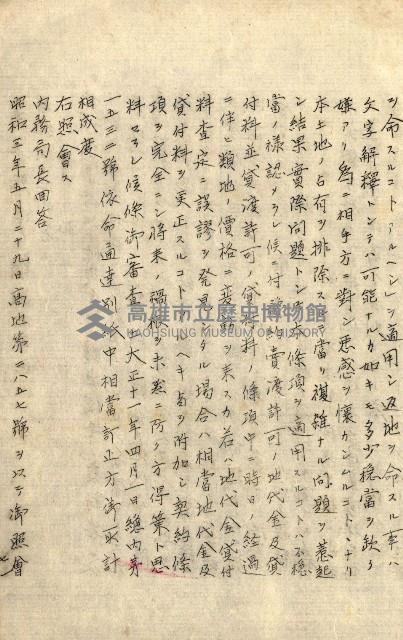 ヲ命スルコトアルヘシ」ヲ適用シ返地ヲ命スル事ハ
文字解釋トシテハ可能ナルカ如キモ多少穏當ヲ欠ク
嫌アリ為ニ相手方ニ對シ悪感ヲ懐カシムルコトトナリ
本土地ノ占有ヲ排除スルニ當リ複雑ナル問題ヲ惹起
シ結果實際問題トシテ本條項ヲ適用スルコトハ不穏
當ノ様認メラレ候ニ付テハ賣渡許可ノ地代金及貸
付料並貸渡許可ノ貸付料ノ條項中ニ時日ノ経過
ニ伴ヒ類地ノ價格ニ変動ヲ来スカ若ハ地代金貸付
料査定ニ誤謬ヲ発見シタル場合ハ相當地代金及
貸付料ヲ更正スルコトアルヘキ旨ヲ附加シ契約條
項ヲ完全ニシ将来ノ禍根ヲ未然ニ防ク方得策ト思
料セラレ候條御審査ノ上大正十一年四月一日總内第
一五三二號依命通達別紙中相當訂正方御取計
相成度
右照會ス
内務局長回答
昭和三年五月二十九日高地第二八五七號ヲ以テ御照會
高雄市立歷史博物館
KAOHSIUNG MUSEUM OF HISTORY